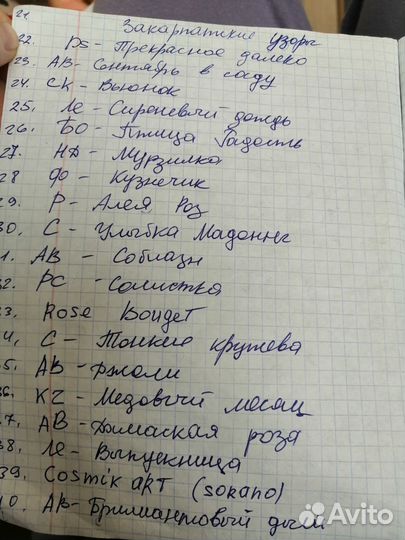 21. Закарпатские узоры
22. PS - Прекрасное далеко
23. АВ - Сентябрь в саду
24. СК - Вьюнок
25. ЛЕ - Сиреневый дождь
26. БО - Птица Радость
27. НД - Мурзилка
28 Ф - Кузнечик
29. Р - Алея Роз
30. С - Улыбка Мадонны
1. АВ - Соблазн
32. РС - Солистка
33. Rose Boudet
4. С - Тонкие кружева
5. АВ - Джоли
36. К2 - Медовый месяц
7. АВ - Дамаская роза
38. ЛЕ - Выпускница
39. Cosmik art (sorano)
0. АВ - Бриллиантовый дым
Avito